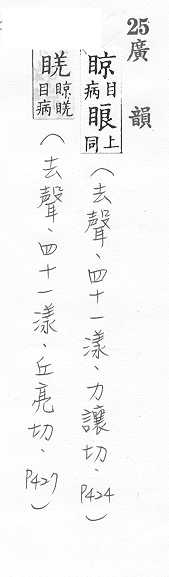 25廣韻
晾目病眼上同(去聲、四十一漾、力讓切、P424)
晄晾晄目病(去聲、四十一漾、丘亮切、P427)